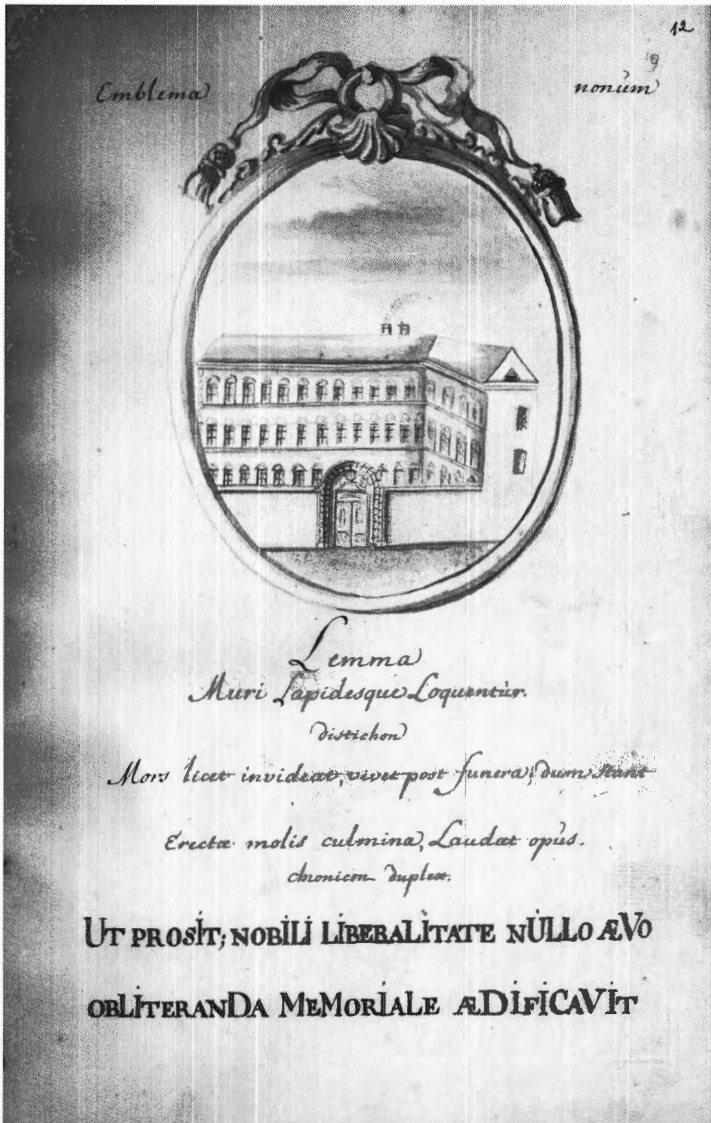 12
9
Emblema nonùm
Lemma
Muri Lapidesque Loquentùr.
distichon
Mors licet invideat, vivet post funera; dum stant
Erectæ molis culmina, Laudat opùs.
chronicon duplex.
UT PROSIT; NOBILI LIBERALITATE NÙLLO ÆVO
OBLITERANDA MEMORIALE ÆDIFICAVIT